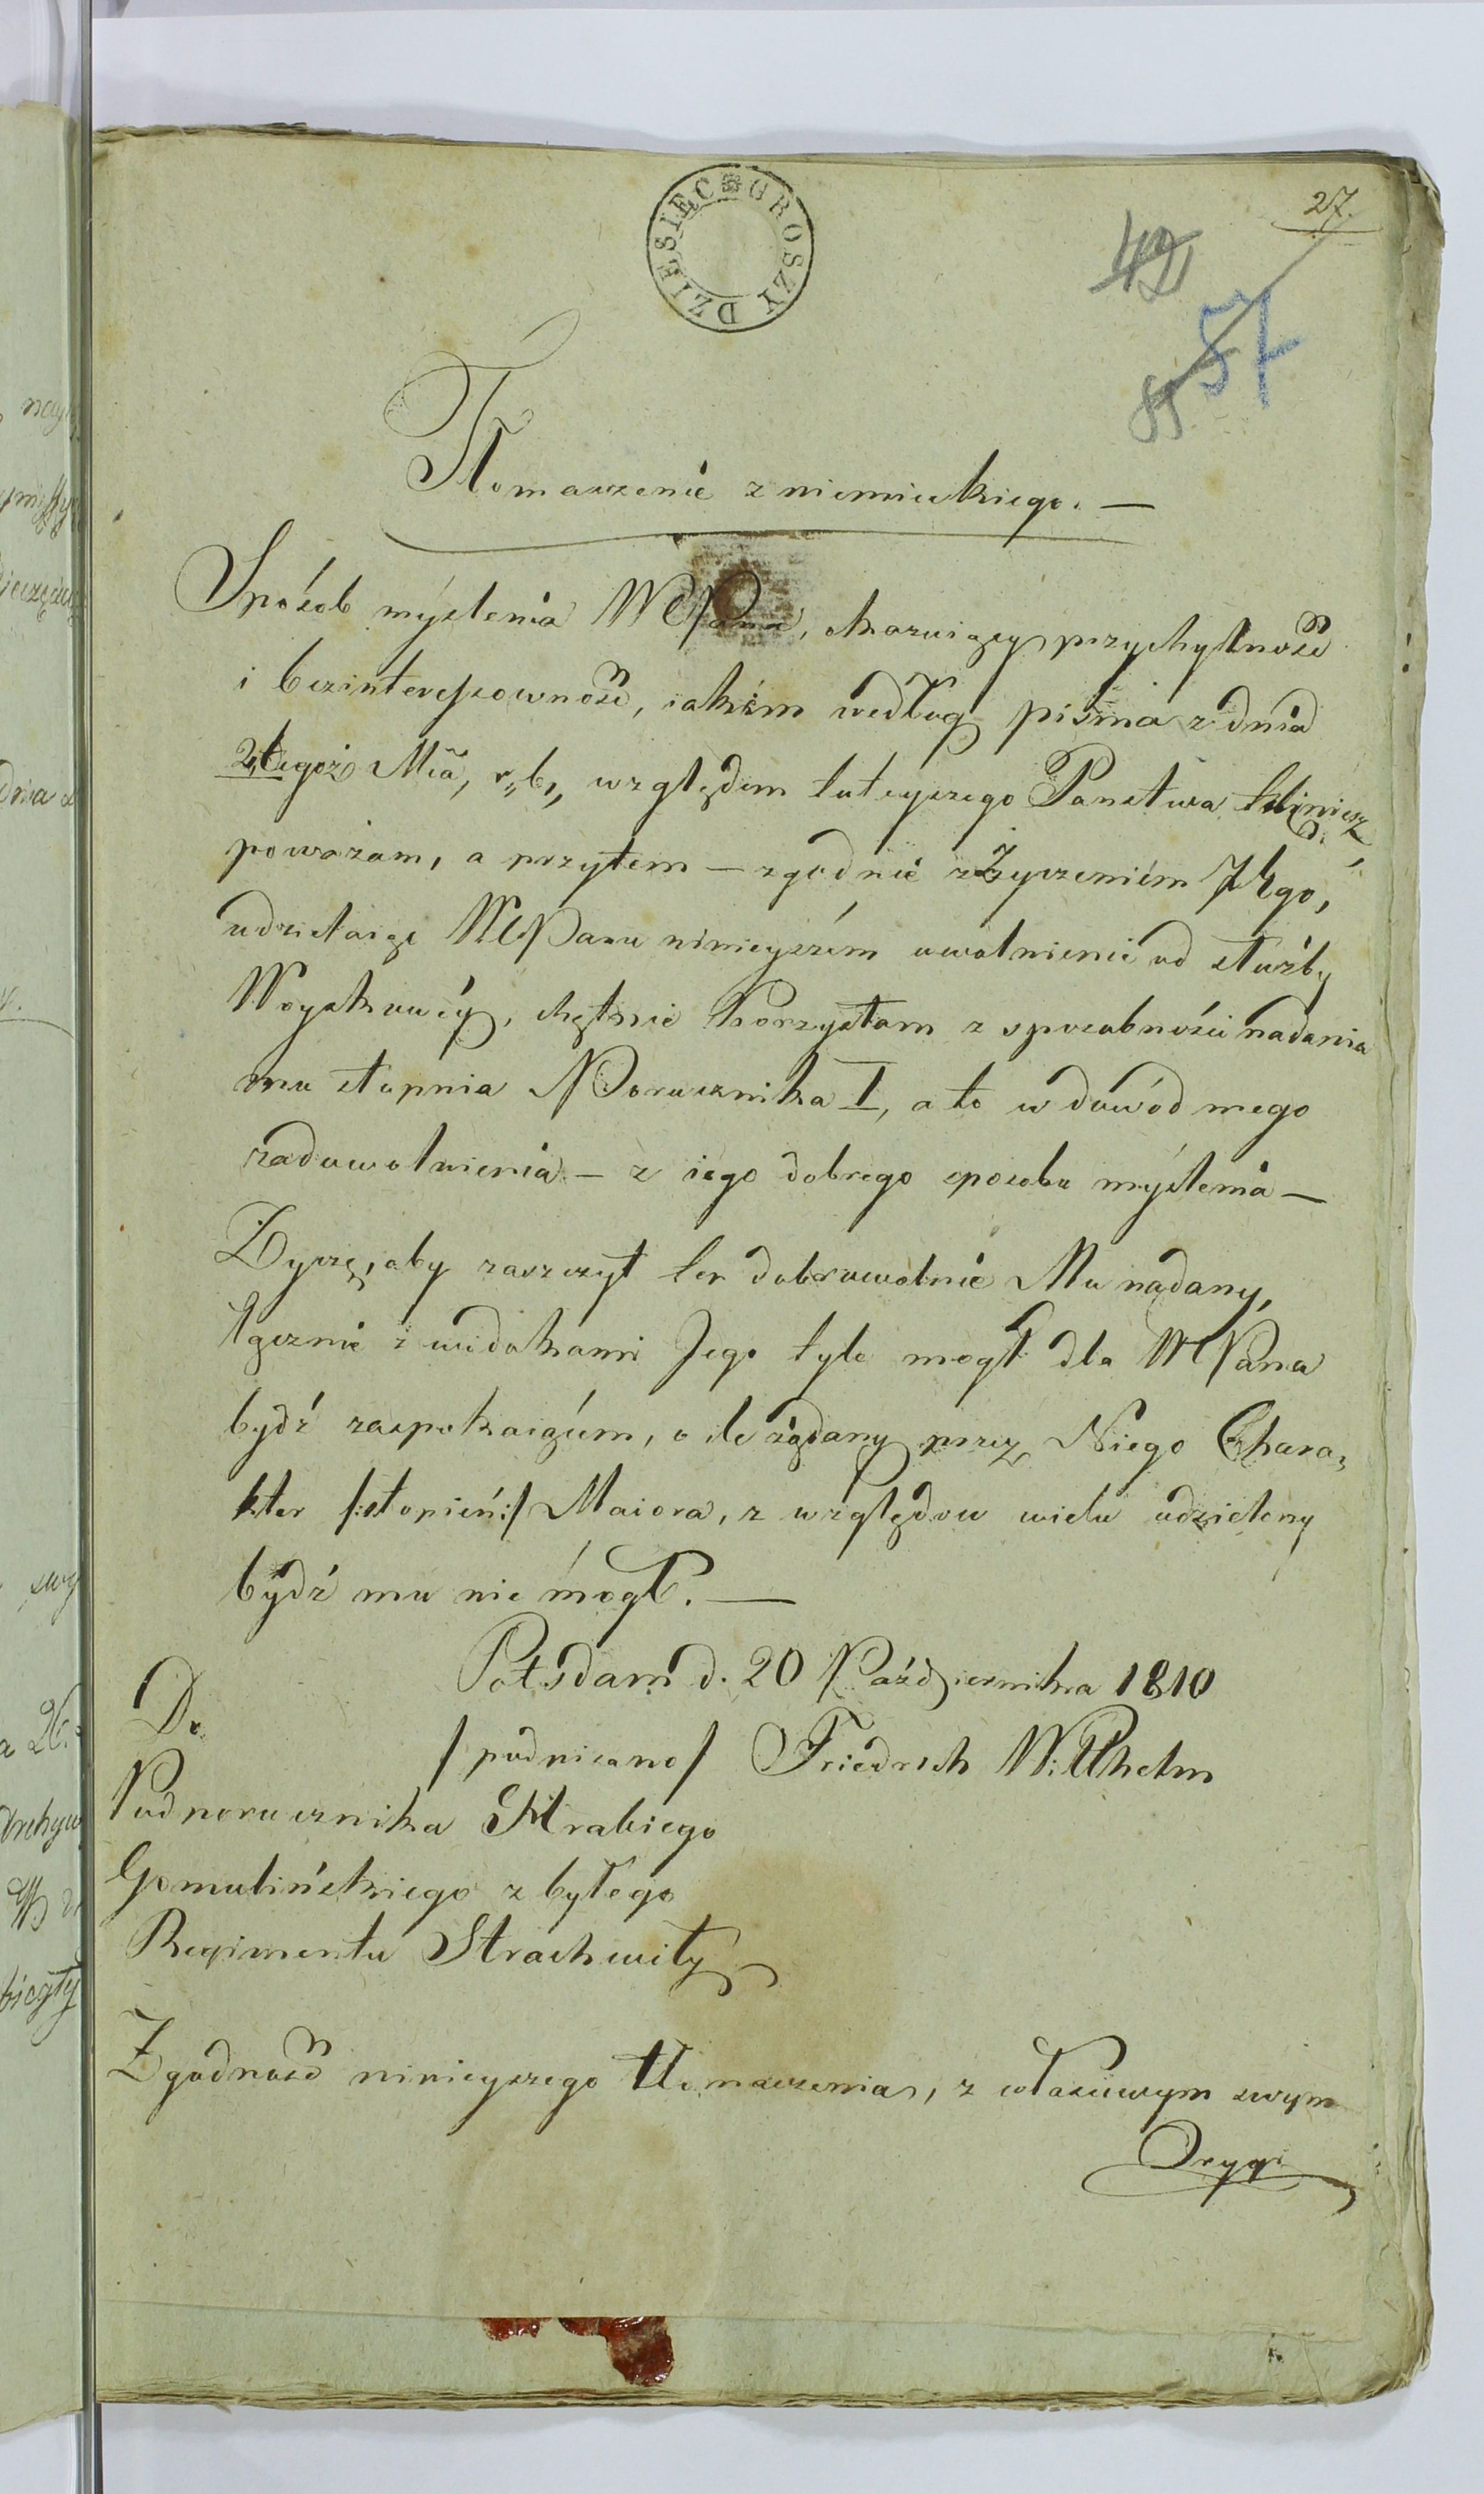 27.
42
57
85
DZIESIEC GROSZY
Tłomaczenie z niemieckiego. —
Sposób myślenia WPana, okazuiący przychylność
i bezinteressowność, iakiém według pisma z dnia
2. tegoż Mca, r. b., względem tuteyszego Panstwa
poważam, a przytem — zgodnie z Życzeniém Jego,
udzielaiąc WPanu ninieyszém uwolnienie od służby
Woyskowéy, chętnie korzystam z sposobności nadania
mu stopnia Porucznika I, a to w dowód mego
zadowolnienia — z iego dobrego sposobu myślenia —
Życzę, aby zaszczyt ten dobrowolnie Mu nadany,
łącznie z widokami Jego tyle mogł dla WPana
bydź zaspokaiącém, o ile żądany przez Niego Chara-
kter /:stopień:/ Maiora, z względow wielu udzielony
bydź mu nie mogł. —
Potsdam d. 20 Października 1810
Do
/podpisano/ Friedrich Wilhelm
Podporucznika Hrabiego
Gomulińskiego z byłego
Regimentu Strachwitz
Zgodność ninieyszego tłomaczenia, z właściwym swym
Orygi